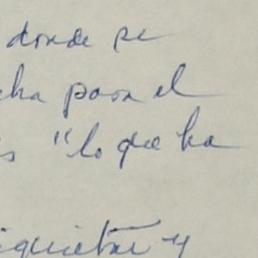 donde se
cha para el
s "lo que ha
iquietud y